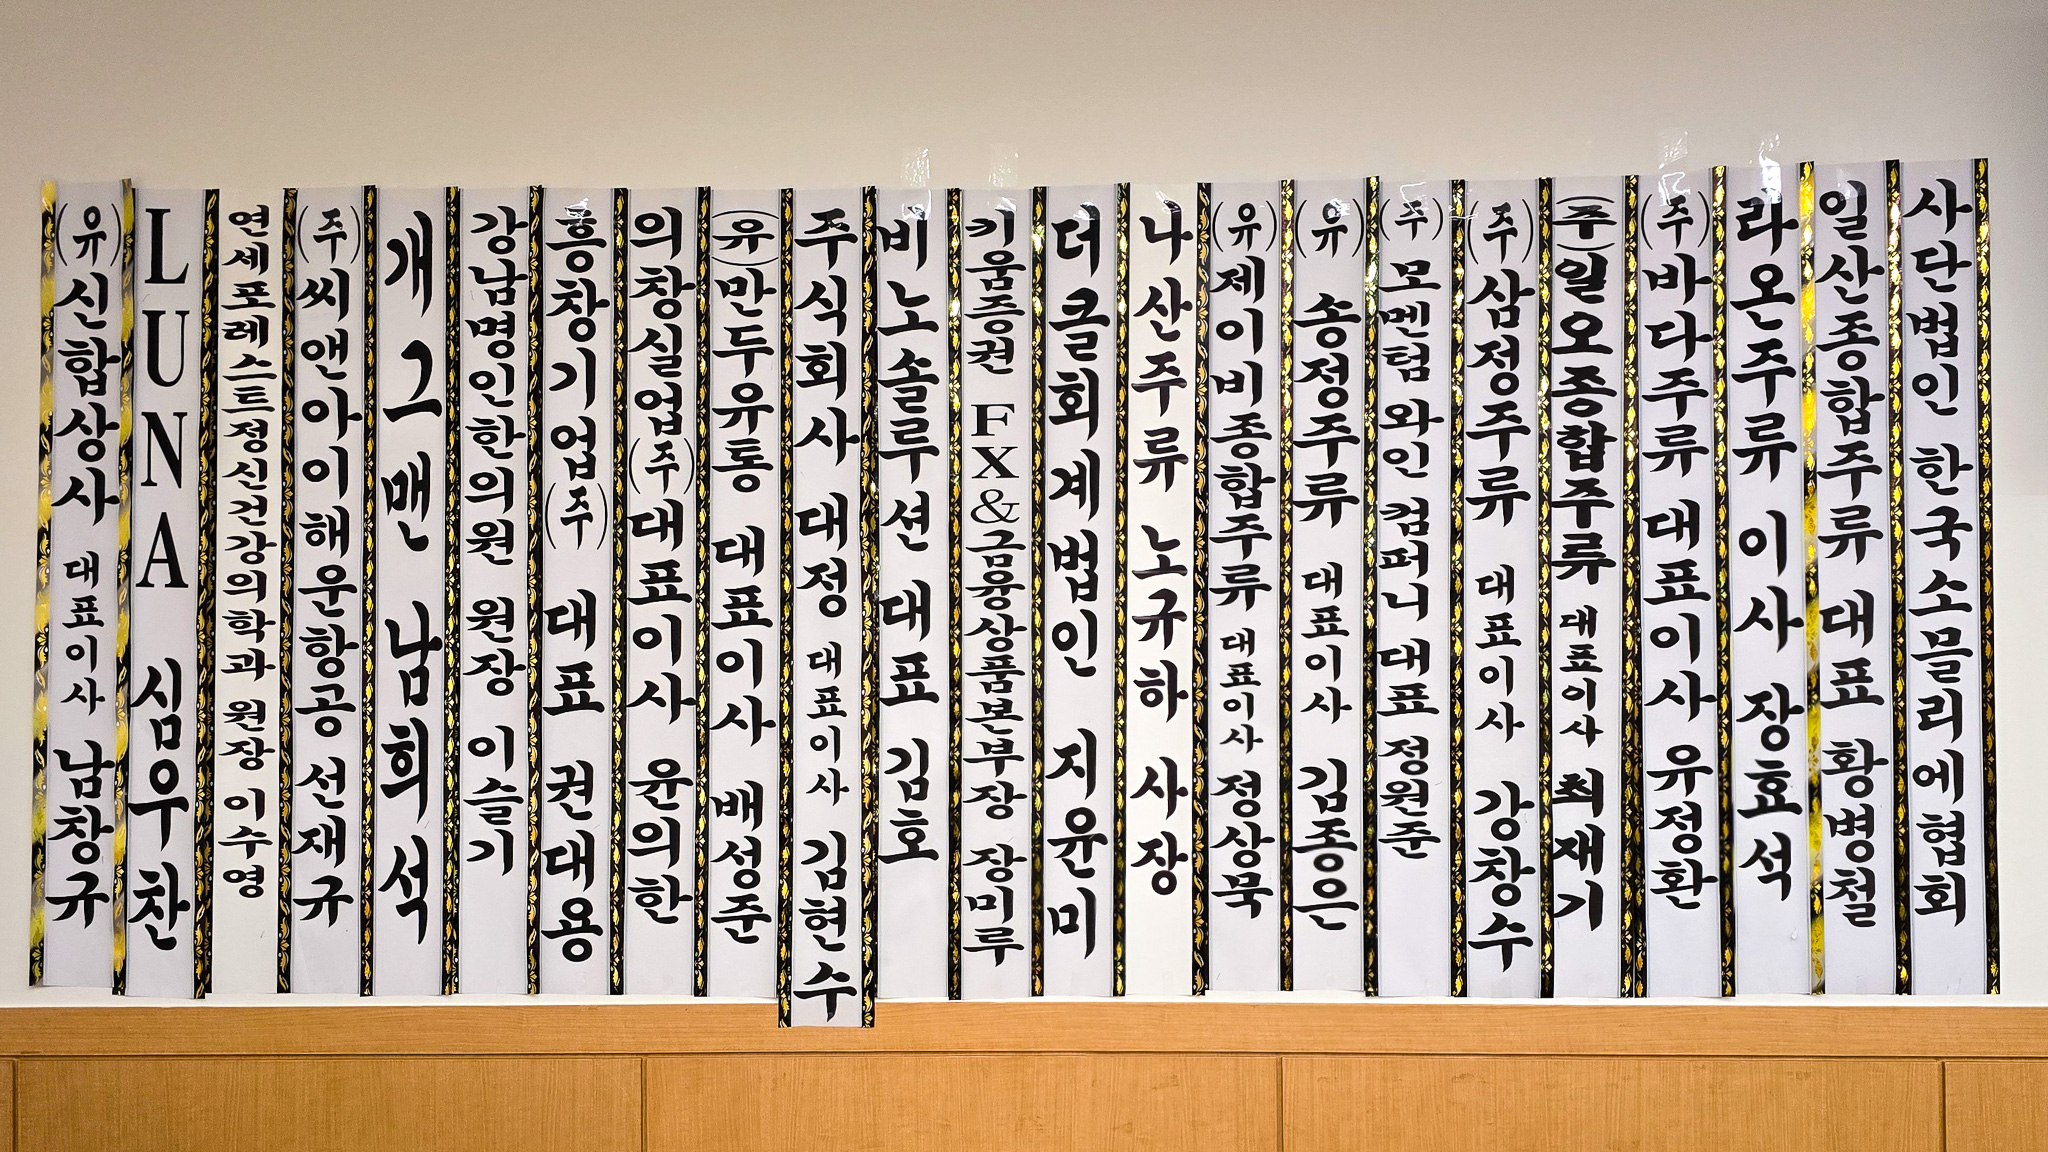 (유)신합상사 대표이사 남창규
LUNA 심우찬
연세포레스트정신건강의학과 원장 이수영
(주)씨앤아이해운항공 선재규
개그맨 남희석
강남명인한의원 원장 이슬기
흥창기업(주) 대표 권대용
의창실업(주)대표이사 윤의한
(유)만두유통 대표이사 배성준
주식회사 대정 대표이사 김현수
비노솔루션 대표 김호
키움증권 FX&금융상품본부장 장미루
더클회계법인 지윤미
나산주류 노규하 사장
(유)제이비종합주류 대표이사 정상묵
(유) 송정주류 대표이사 김종은
(주)모멘텀 와인 컴퍼니 대표 정원준
(주)삼정주류 대표이사 강창수
(주)일오종합주류 대표이사 최재기
(주)바다주류 대표이사 유정환
라온주류 이사 장효석
일산종합주류 대표 황병철
사단법인 한국소믈리에협회